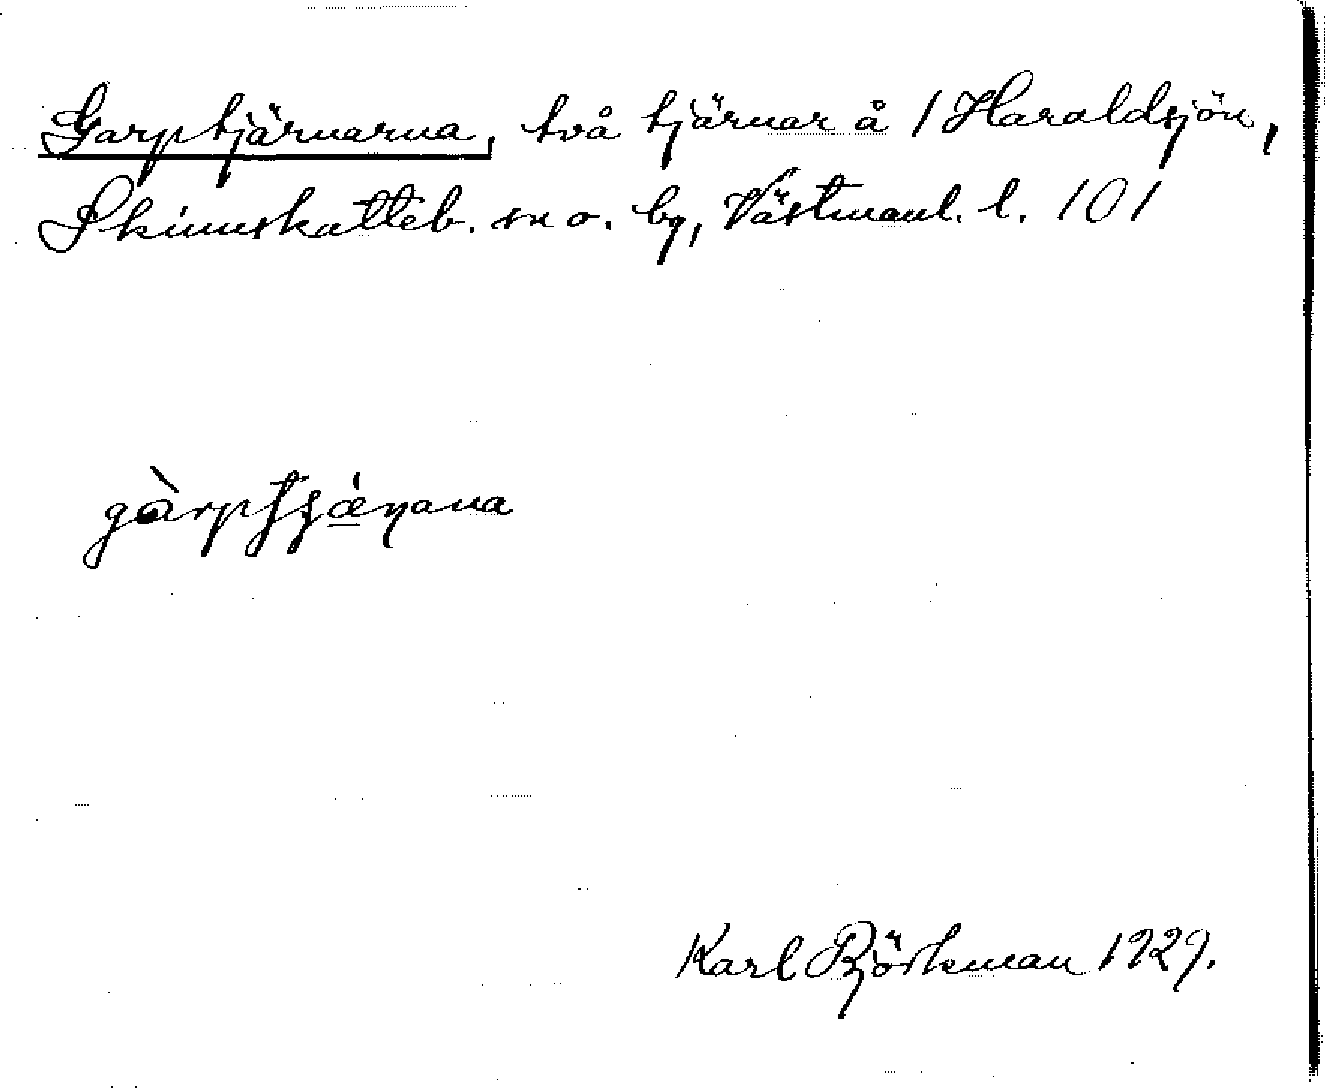 Garptjärnarna, två tjärnar å 1 Haraldsjön,
Skinnskatteb. sn o. by, Västmanl. l. 101
Karl Björkman 1929.